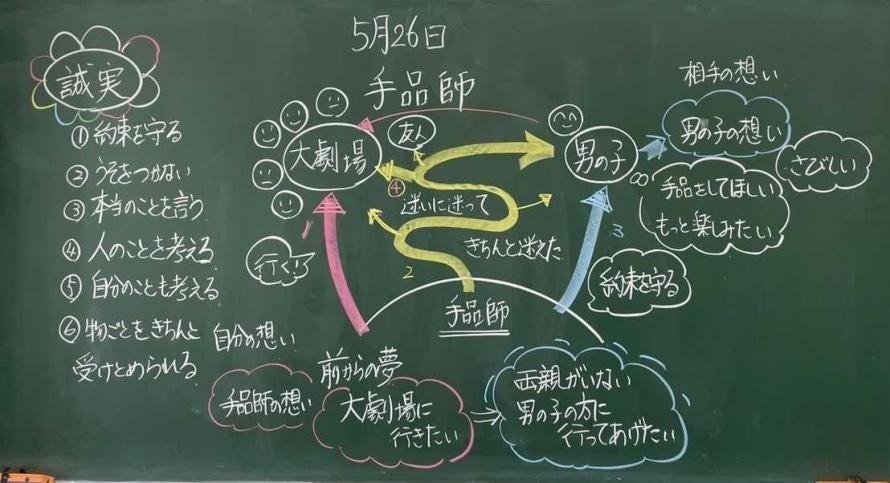 5月26日
手品師
誠実
① 約束を守る
② うそをつかない
③ 本当のことを言う
④ 人のことを考える
⑤ 自分のことも考える
⑥ 物ごとをきちんと
受けとめられる
大劇場
友人
男の子
相手の想い
男の子の想い
さびしい
手品をしてほしい
もっと楽しみたい
④
迷いに迷って
きちんと迷えた
1
2
3
行く!!
約束を守る
手品師
自分の想い
手品師の想い
前からの夢
大劇場に
行きたい
両親がいない
男の子の方に
行ってあげたい